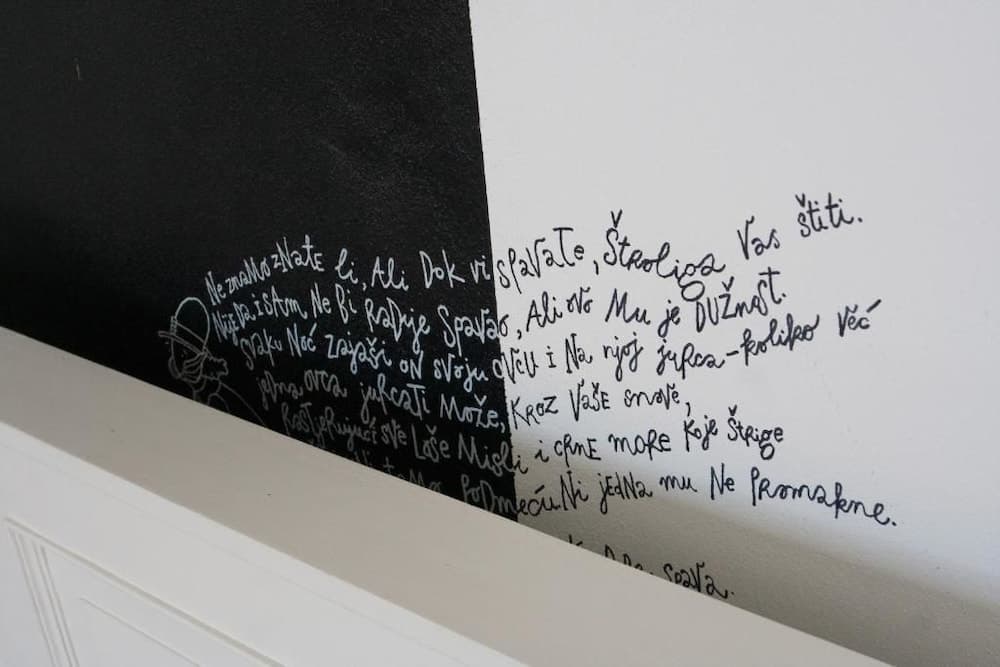 Ne znamo znate li, Ali Dok vi spavate, Štroliga Vas štiti.
Nije Da i sam Ne Bi Radije Spavao, Ali ovo Mu je DUŽNOST.
Svaku Noć zajaši on svoju ovcu i Na njoj jurca-koliko već
jedna ovca jurcati Može, kroz Vaše snove,
Rastjerujući sve Loše Misli i crne more koje Štrige
Podmeću. Ni jedna mu Ne Promakne.
spava.